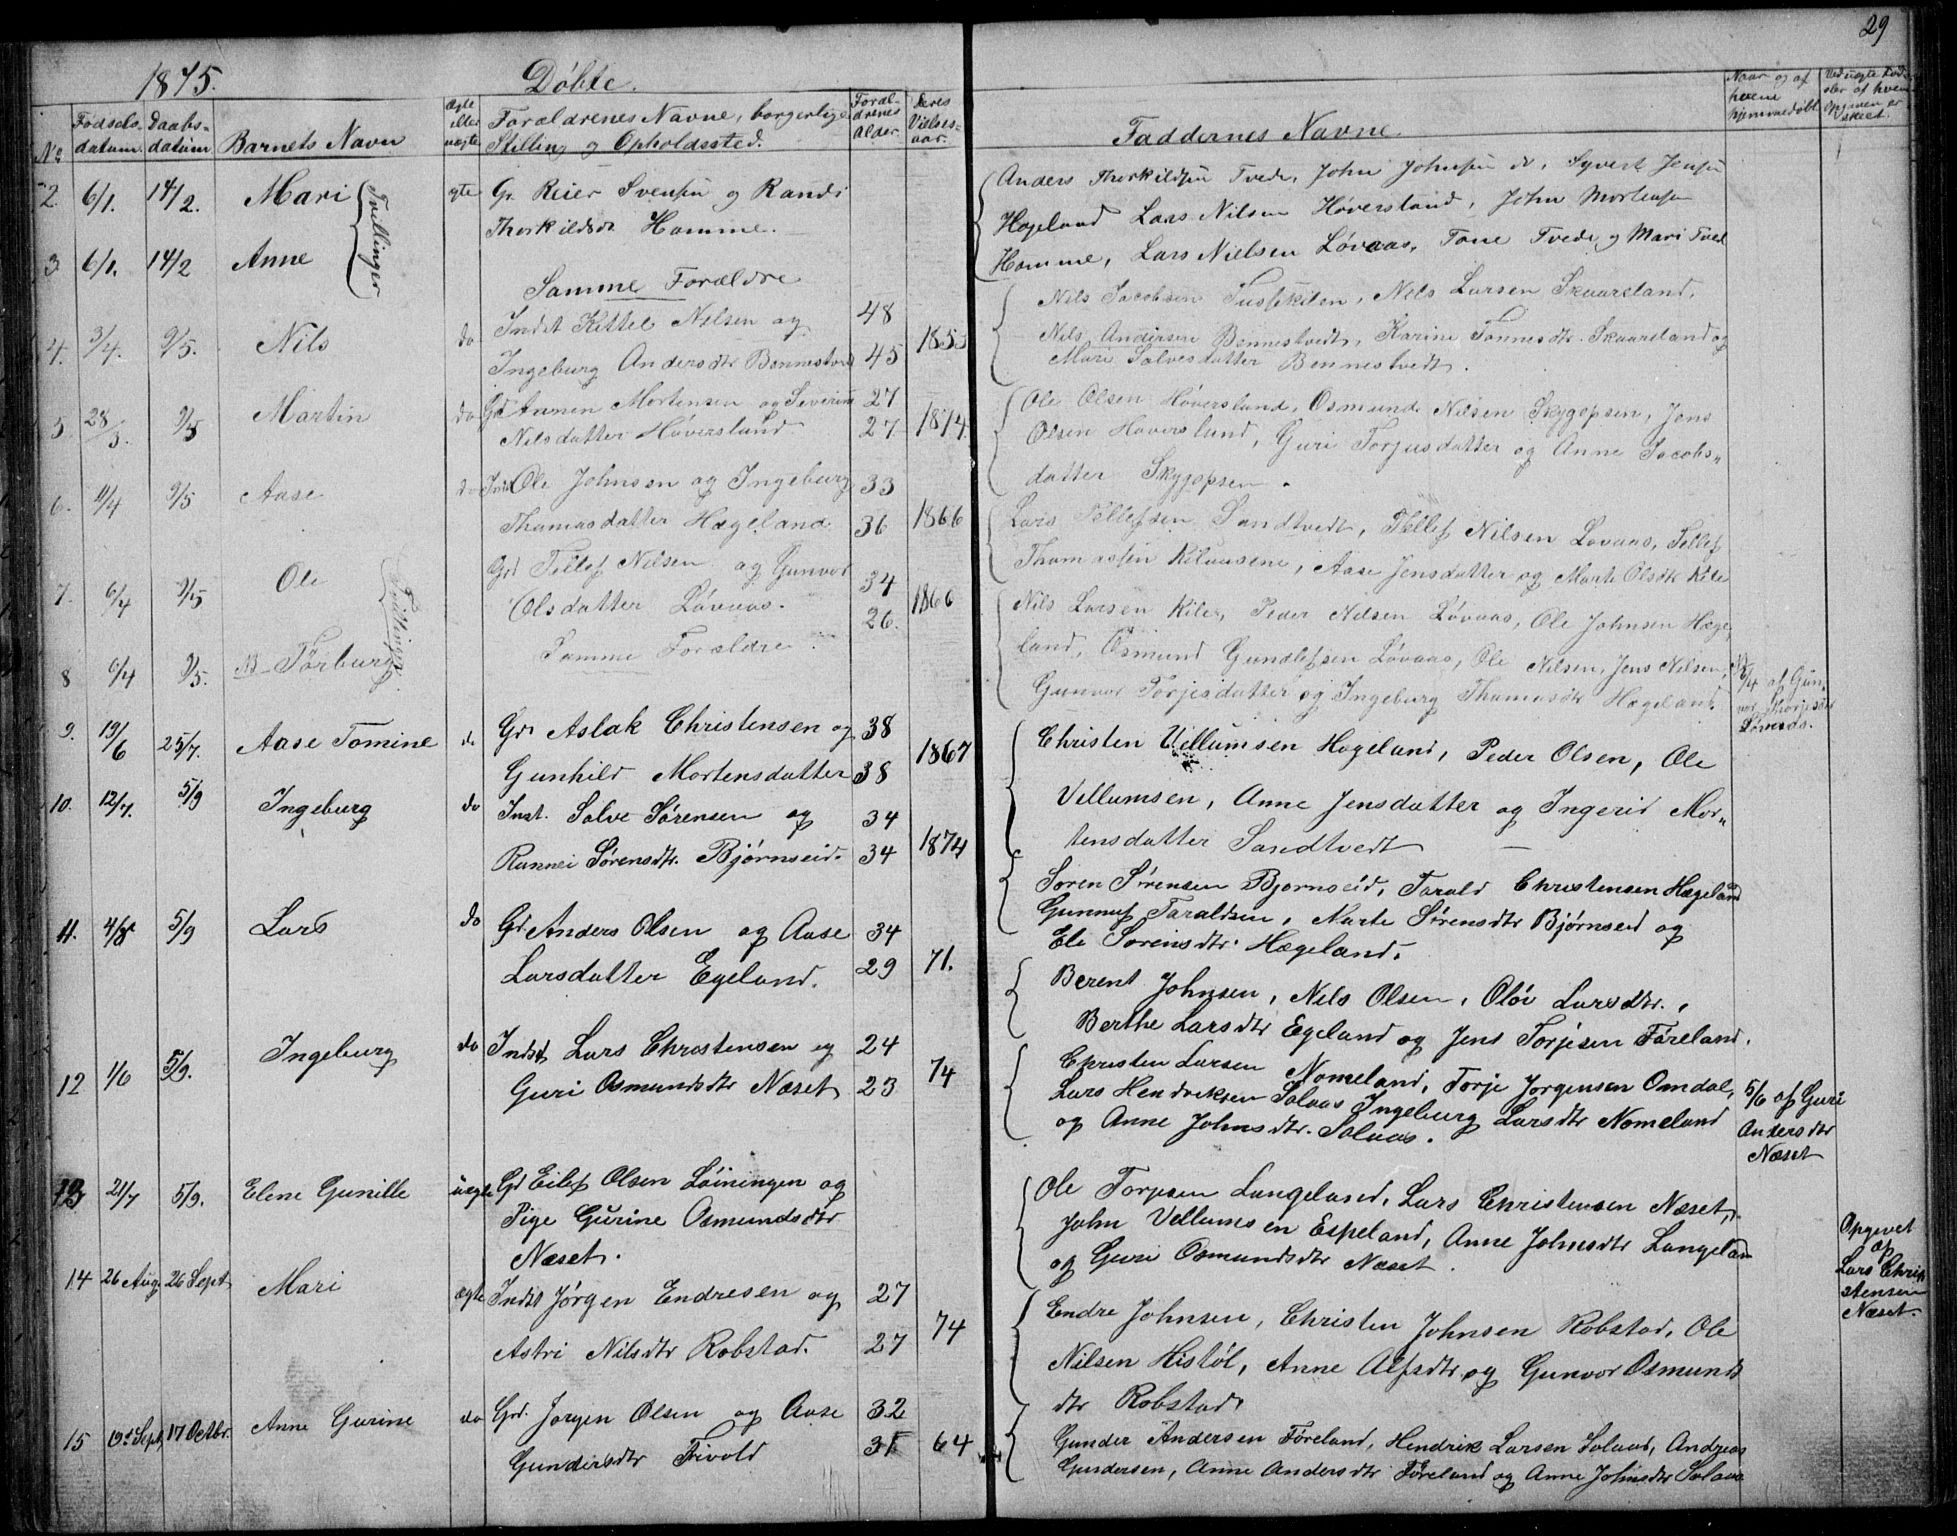 29
1875.
Døbte.
No
Fødsels-
datum.
Daabs-
datum
Barnets Navn
ægte
eller
uægte
Forældrenes Navne, borgerlige
Stilling og Opholdssted.
Foræl-
drenes
Alder.
Deres
Vielses-
aar.
Faddernes Navne.
Naar og af
hvem
hjemmedøbt
Ved uægte
af hvem
Opgiven er
skeet.
2. 6/1. 14/2. Mari
Tvillinger
ægte Gr. Reier Svensen og Randi
Thorkildsdt Homme.
Anders Thorkildsen Tvede, John Johnsen do, Syvert Jensen
Hægeland Lars Nilsen Høversland, John Mortensen
Homme, Lars Nielsen Løvaas, Tone Tvede og Mari Tved
3. 6/1. 14/2 Anne
Samme Forældre
4. 3/4. 9/5. Nils do Indst Kittel Nilsen og 48
Ingeburg Andersdtr Bennestvedt 45 1853
Nils Jacobsen, Nils Larsen Skaareland,
Nils Andersen Bennestvedt, Karine Tonnesdtr. Skaareland og
Mari Salvesdatter Bennestvedt.
5. 28/3. 9/5 Martin do Gd Annen Mortensen og Severine 27
Nilsdatter Høversland 27 1874.
Ole Olsen Høversland, Osmund Nilsen Skygopsen, Jens
Olsen Høversland, Guri Torjusdatter og Anne Jacobs-
datter Skygopsen.
6. 11/4 9/5 Aase do Indst Ole Johnsen og Ingeburg 33
Thomasdatter Hægeland 36 1866
Lars Tellefsen Sandtvedt, Tellef Nilsen Løvaas, Tellef
Thomassen Kilaasene, Aase Jensdatter og Marte Olsdtr Kile
7. 6/4 9/5 Ole
Tvillinger
Grd Tellef Nilsen og Gunvor 34
Olsdatter Løvaas. 26. 1866
Nils Larsen Kile, Peder Nilsen Løvaas, Ole Johnsen Hæge-
land, Osmund Gundlefsen Løvaas, Ole Nilsen, Jens Nilsen,
Gunvor Torjesdatter og Ingeburg Thomasdtr Hægeland
8 6/4 9/5. Torburg
Samme Forældre.
6/4 af Gun-
vor Thorjesdtr
Løvaas.
9. 19/6 25/7. Aase Tomine do Grd Aslak Christensen og 38
Gunhild Mortensdatter 38 1867
Christen Villumsen Hægeland, Peder Olsen, Ole
Villumsen, Anne Jensdatter og Ingerid Mor-
tensdatter Sandtvedt
10. 12/7. 5/9 Ingeburg do Inst. Salve Sørensen og 34
Rannei Sørensdtr. Bjørnseid. 34 1874
Søren Sørensen Bjørnseid, Tarald Christensen Hægeland
Gunnuf Taraldsen, Marte Sørensdtr Bjørnseid og
Eli Sørensdtr. Hægeland.
11. 4/8 5/9 Lars do Gd Anders Olsen og Aase 34
Larsdatter Egeland. 29 71.
Berent Johnsen, Nils Olsen, Oløv Larsdtr.,
Berthe Larsdtr Egeland og Jens Torjesen Føreland.
12 1/6 5/9. Ingeburg do Indst Lars Christensen og 24
Guri Osmundsdtr Næset 23 74
Christen Larsen Nomeland, Torje Jørgensen Omdal,
Lars Hendriksen Solaas Ingeburg Larsdtr Nomeland
og Anne Johnsdtr. Solaas.
5/6 af Guri
Andersdtr
Næset
13 21/7 5/9. Elene Gunille uægte Gd Eilef Olsen Løiningen og
Pige Gurine Osmundsdtr
Næset.
Ole Torjesen Langeland, Lars Christensen Næset,
John Vellumsen Espeland, Anne Johnsdtr Langeland
og Guri Osmundsdtr Næset.
Opgivet
af
Lars Chri-
stensen
Næset.
14 26 Aug. 26 Sept Mari ægte Indst Jørgen Endresen og 27
Astri Nilsdtr Robstad. 27 74
Endre Johnsen, Christen Johnsen Robstad, Ole
Nilsen Histøl, Anne Alfsdtr. og Gunvor Osmunds
dtr Robstad
15 19d Sept 17 Octbr. Anne Gurine do Grd. Jørgen Olsen og Aase 32
Gundersdtr Tivold 31 64
Gunder Andersen Føreland, Hendrik Larsen Solaas, Andreas
Gundersen, Anne Andersdtr Føreland og Anne Johnsdtr Solaas